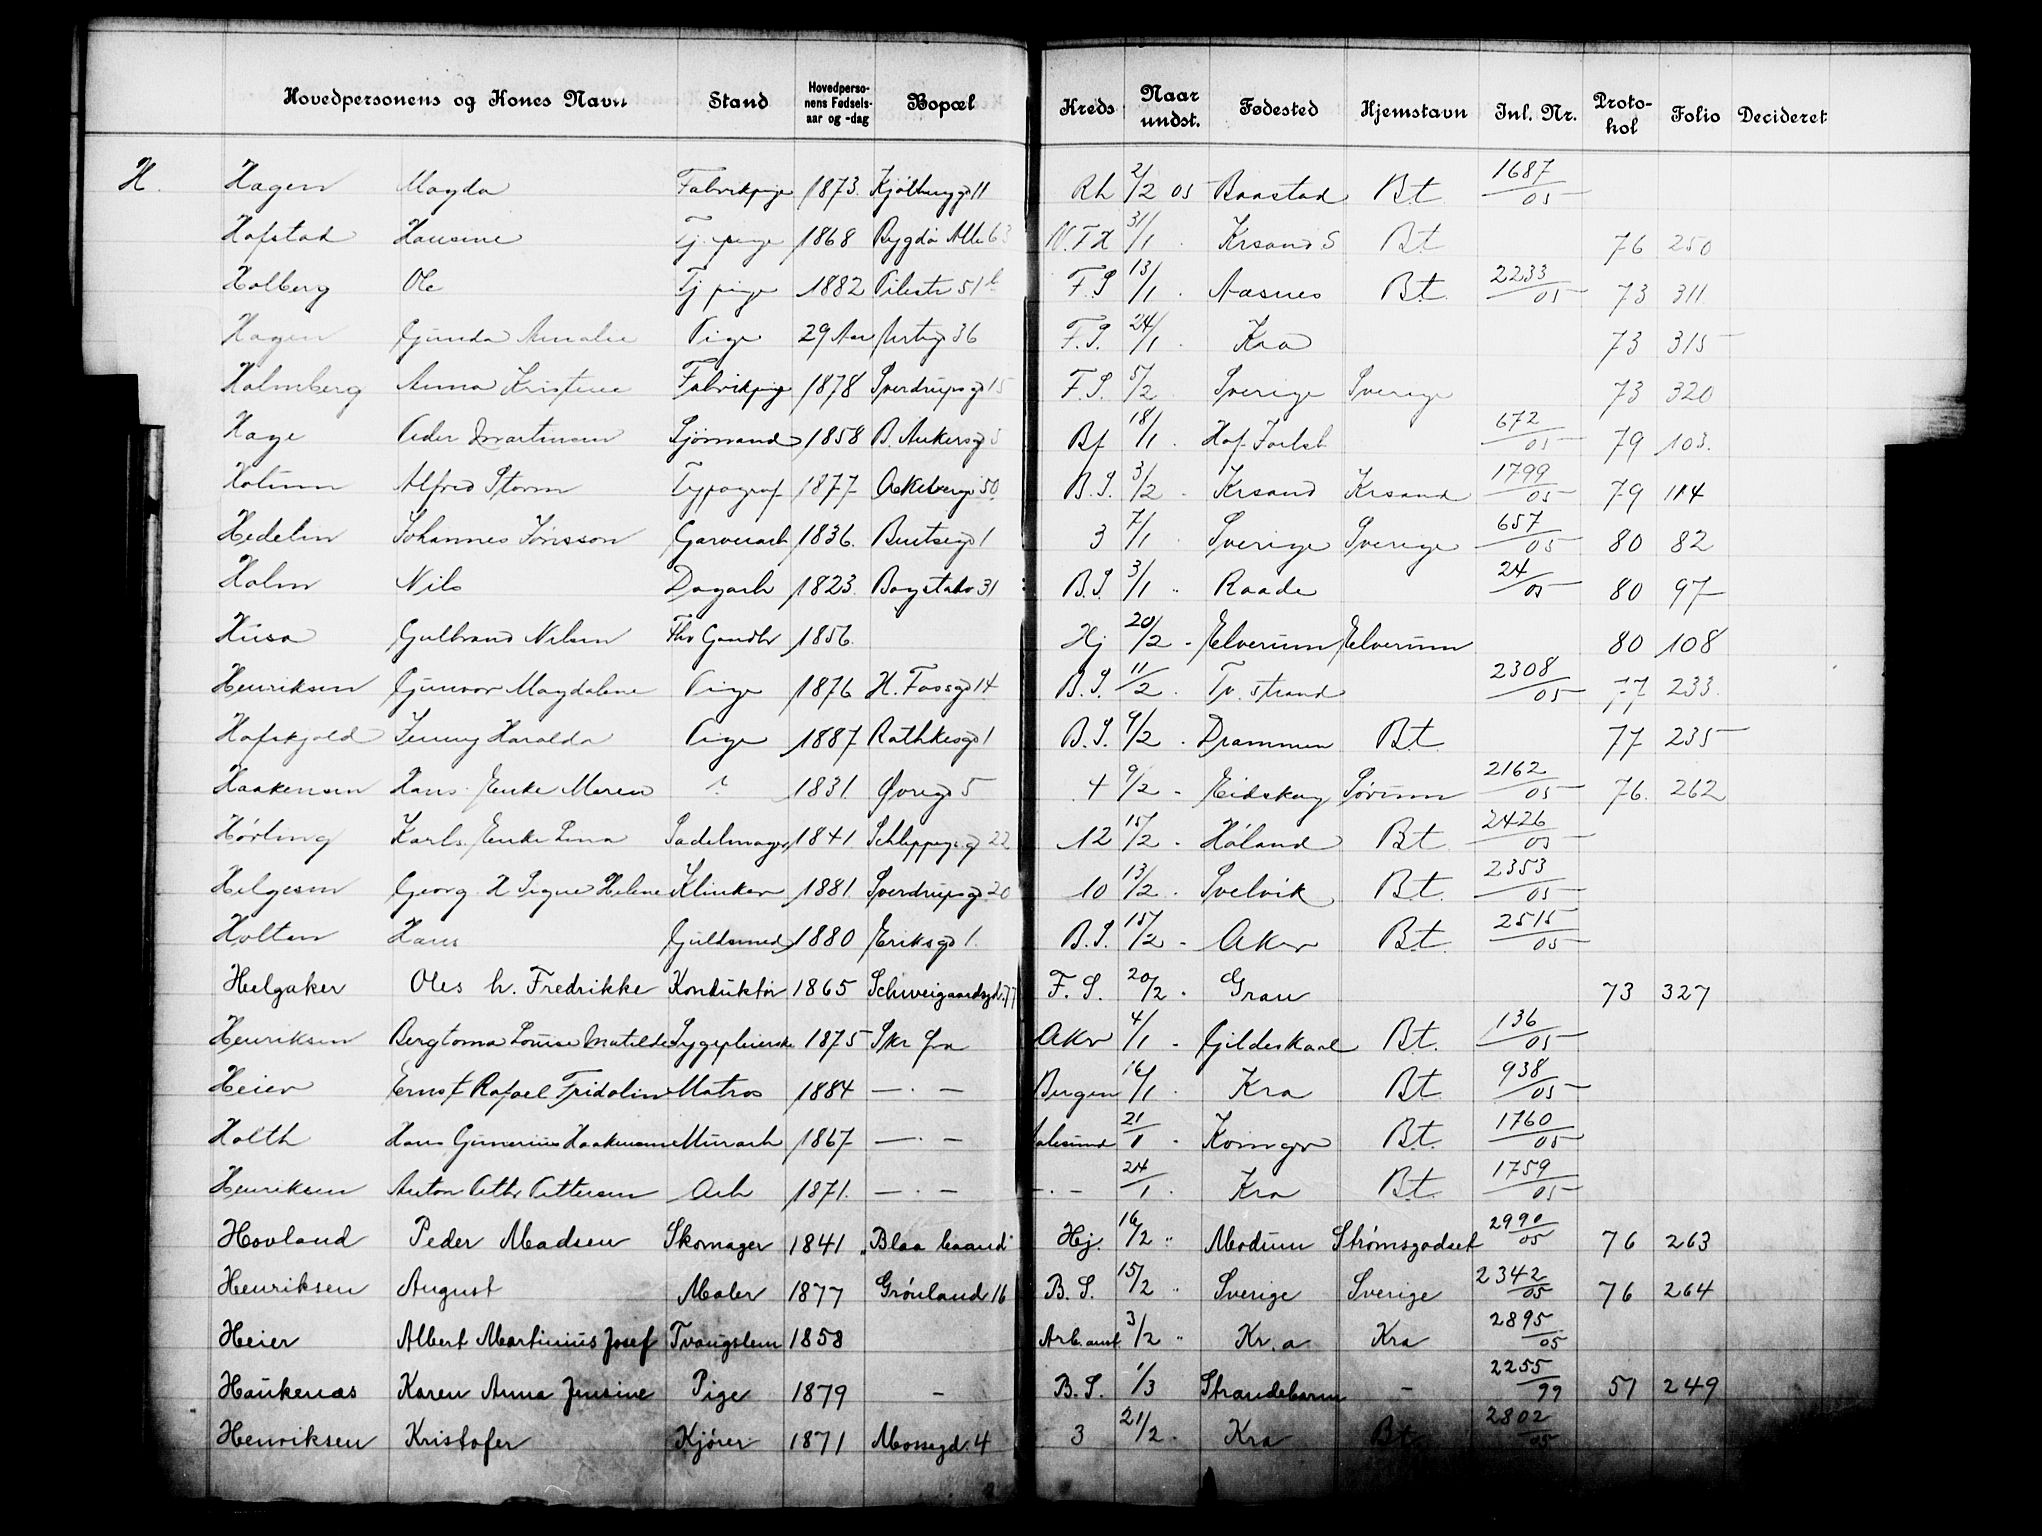 Hovedpersonens og Kones Navn Stand Hovedpersonens Fødselsaar og -dag Bopæl Kreds Naar undst. Fødested Hjemstavn Inl. Nr. Protokol Folio Decideret
H. Hagen Magda Fabrikpige 1873. 11 Rh 2/2 05 Baastad Bt 1687/05
Hofstad Hansine Tj. pige 1868 Bygdø Alle 63 V.T.H 31/1 Krsand S Bt 76 250
Holberg Ole Tj pige 1882 Pilestr 51 b F.S 13/1 Aasnes Bt. 2233/05 73 311
Hagen Gunda Amalie Pige 29 Aar 36 F.S. 24/1 Kra 73 315
Holmberg Anna Kristine Fabrikpige 1878 Sverdrupsgd 15 F.S. 5/2 Sverige Sverige 73 320
Hage Peder Martinsen Sjømand 1858 B. Ankersgd 5 Bf 18/1 Hof Jarlsb 672/05 79 103.
Holmm Alfred Storm Typograf 1877 Akebergv 50 B.S. 3/2 Krsand Krsand 1799/05 79 114
Hedelin Johannes Jönsson Garverarb 1836. Bentsegd 1 3 7/1 Sverige Sverige 657/05 80 82
Holm Nils Dagarb 1823. Bogstadv 31 B.S. 3/1 " Raade 24/05 80 97
Husa Gulbrand Nilsen Fhv Gaardbr 1856. Hj 20/2 - Elverum Elverum 80 108
Henriksen Gunvor Magdalene Pige 1876 H. Fossgd 14 B.S. 11/2 Tv.strand 2308/05 77 233.
Hofskjold Jenny Haralda Pige 1887 Rathkesgd 1 B.S. 9/2 Drammen Bt 77 235
Haakensen Hans. Enke Maren ? 1831. Øvregd 5 4 9/2 - Eidskog Sørum 2162/05 76. 262
Hørling Karls. Enke Lina Sadelmager 1841 Schleppegsgd 22 12 15/2 - Høland Bt. 2426/05
Helgesen Georg. H Signe Helene Klinker 1881. Sverdrupsgd. 20 10 13/2 Svelvik Bt. 2353/05
Holten Hans Guldsmed 1880 Eriksgd 1. B.S. 15/2 - Aker Bt. 2515/05
Helgaker Oles h. Fredrikke Konduktør 1865 Schweigaardsgd. 77 F.S. 20/2 Gran 73 327
Henriksen Bergtoma Louise Matilde Sygepleierske 1875 Skr fra Aker 4/1 - Gildeskaal Bt. 136/05
Heier Ernst Rafael Fridolin Matros 1884 — . — Bergen 16/1 Kra Bt. 938/05
Holth Hans Gunerius Haakensen Murarb 1867 — . — alesund 21/1 Bt. 1760/05
Henriksen Anton Pettersen Arb 1871. — . — - . - 24/1 Kra Bt. 1759/05
Hovland Peder Madsen Skomager 1841 "Blaa baand" Hj. 16/2 " Modum Strømsgodset 2990/05 76 263
Henriksen August Maler 1877 Grønland 16 B.S. 15/2 " Sverige Sverige 2342/05 76 264
Heier Albert Martinius Josef Tvangslem 1858 Arb.anst. 3/2 " Kr.a Kra 2895/05
Haukenæs Karen Anna Jensine Pige 1879 - B.S. 1/3 Strandebarm - 2255/99 51 249
Henriksen Kristofer Kjører 1871 Mossegd. 4 3 21/2 - Kra Bt 2802/05